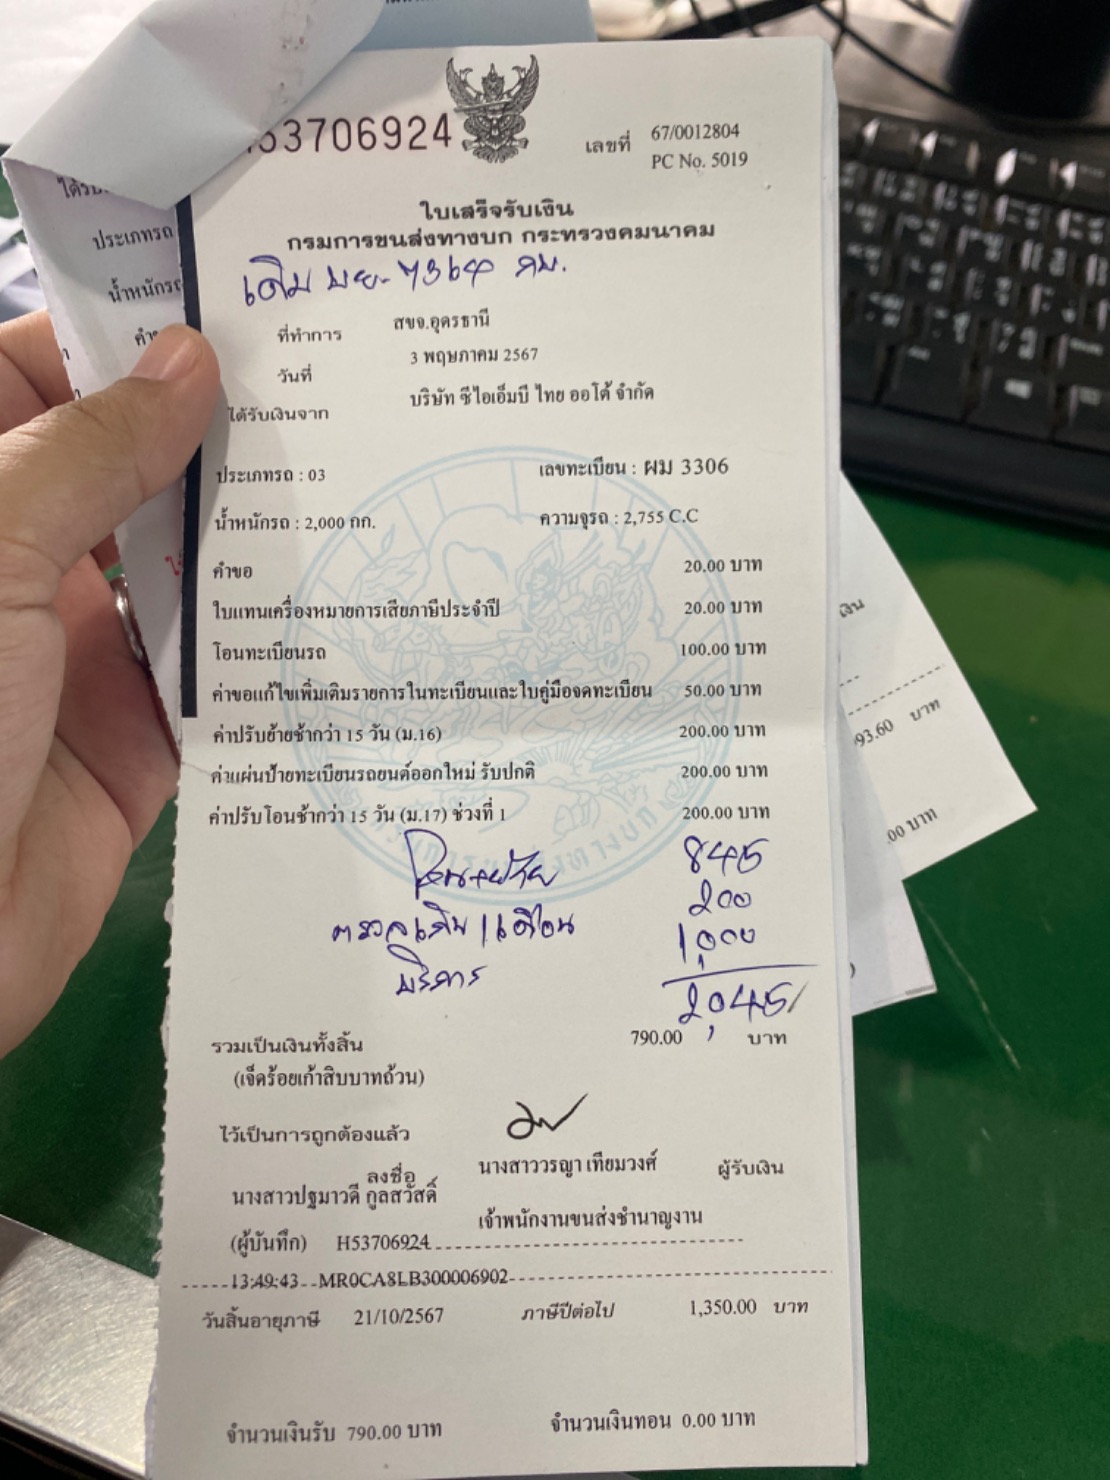 53706924
เลขที่ 67/0012804
PC No. 5019
ใบเสร็จรับเงิน
กรมการขนส่งทางบก กระทรวงคมนาคม
เดิม 7364
ที่ทำการ สขจ.อุดรธานี
วันที่ 3 พฤษภาคม 2567
ได้รับเงินจาก บริษัท ซีไอเอ็มบี ไทย ออโต้ จำกัด
ประเภทรถ : 03 เลขทะเบียน : ผม 3306
น้ำหนักรถ : 2,000 กก. ความจุรถ : 2,755 C.C
คำขอ 20.00 บาท
ใบแทนเครื่องหมายการเสียภาษีประจำปี 20.00 บาท
โอนทะเบียนรถ 100.00 บาท
ค่าขอแก้ไขเพิ่มเติมรายการในทะเบียนและใบคู่มือจดทะเบียน 50.00 บาท
ค่าปรับย้ายช้ากว่า 15 วัน (ม.16) 200.00 บาท
ค่าแผ่นป้ายทะเบียนรถยนต์ออกใหม่ รับปกติ 200.00 บาท
ค่าปรับโอนช้ากว่า 15 วัน (ม.17) ช่วงที่ 1 200.00 บาท
845
200
บริการ 1,000
2,045
รวมเป็นเงินทั้งสิ้น 790.00 บาท
(เจ็ดร้อยเก้าสิบบาทถ้วน)
ไว้เป็นการถูกต้องแล้ว
ลงชื่อ นางสาววรญา เทียมวงศ์ ผู้รับเงิน
นางสาวปฐมาวดี กูลสวัสดิ์
เจ้าพนักงานขนส่งชำนาญงาน
(ผู้บันทึก) H53706924
13:49:43 MR0CA8LB300006902
วันสิ้นอายุภาษี 21/10/2567 ภาษีปีต่อไป 1,350.00 บาท
จำนวนเงินรับ 790.00 บาท จำนวนเงินทอน 0.00 บาท
ประเภทรถ
น้ำหนักรถ
93.60 บาท
.00 บาท